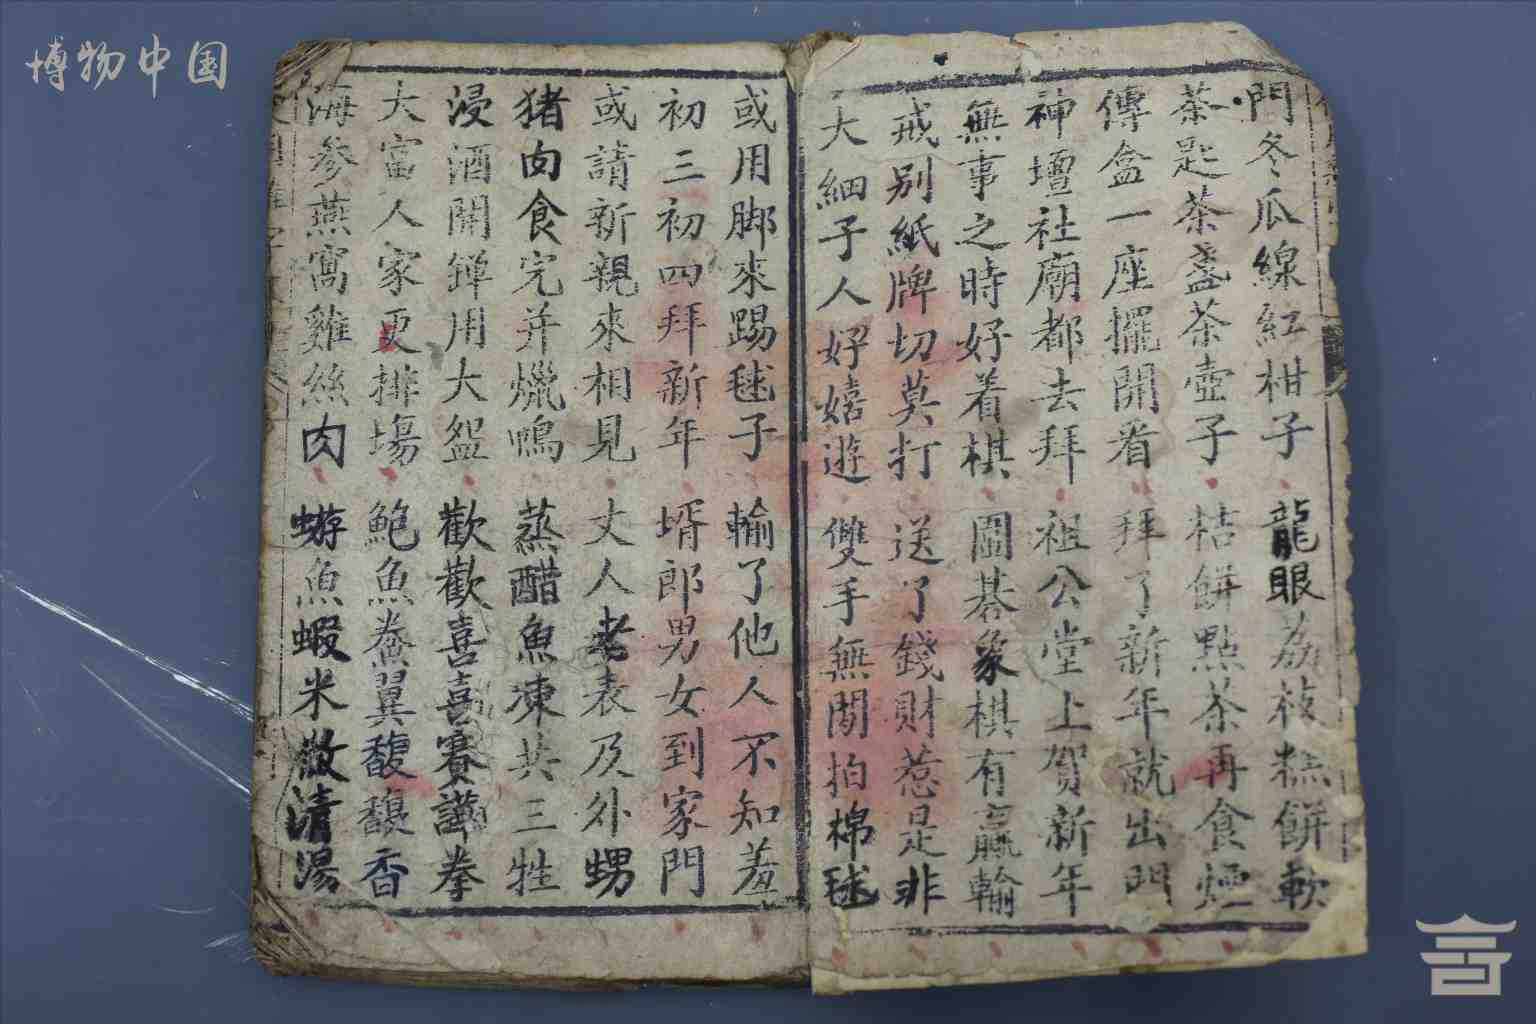 博物中国
門冬瓜線紅柑子龍眼荔枝糕餅軟
茶匙茶盞茶壺子桔餅點茶再食煙
傳盒一座擺開看拜了新年就出門
神壇社廟都去拜祖公堂上賀新年
無事之時好着棋圍棊象棋有贏輸
戒别紙牌切莫打送了錢財惹是非
大細子人好嬉遊雙手無閒拍棉毬
或用脚來踢毬子輸了他人不知羞
初三初四拜新年壻郎男女到家門
或請新親來相見丈人老表及外甥
猪肉食完并爉鴨蒸醋魚凍共三牲
浸酒開鐔用大盌歡歡喜喜賽講拳
大富人家更排塲鮑魚鯗翼馥馥香
海參燕窩雞絲肉蝣魚蝦米散清湯